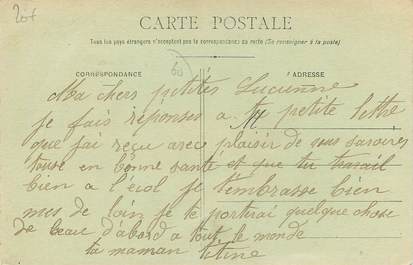 207
CARTE POSTALE
Tous les pays étrangers n'acceptent pas la correspondance au recto (Se renseigner à la poste)
CORRESPONDANCE
ADRESSE
60
Ma chers petites Lucienne
je fais réponses a ta petite lettre
que jai reçu avec plaisir de vous savoires
touse en bonne santé et que tu travail
bien a l'écol je t'embrasse bien
mes de loin je te porterai quelque chose
de beau d'abord a tout le monde
ta maman Titine